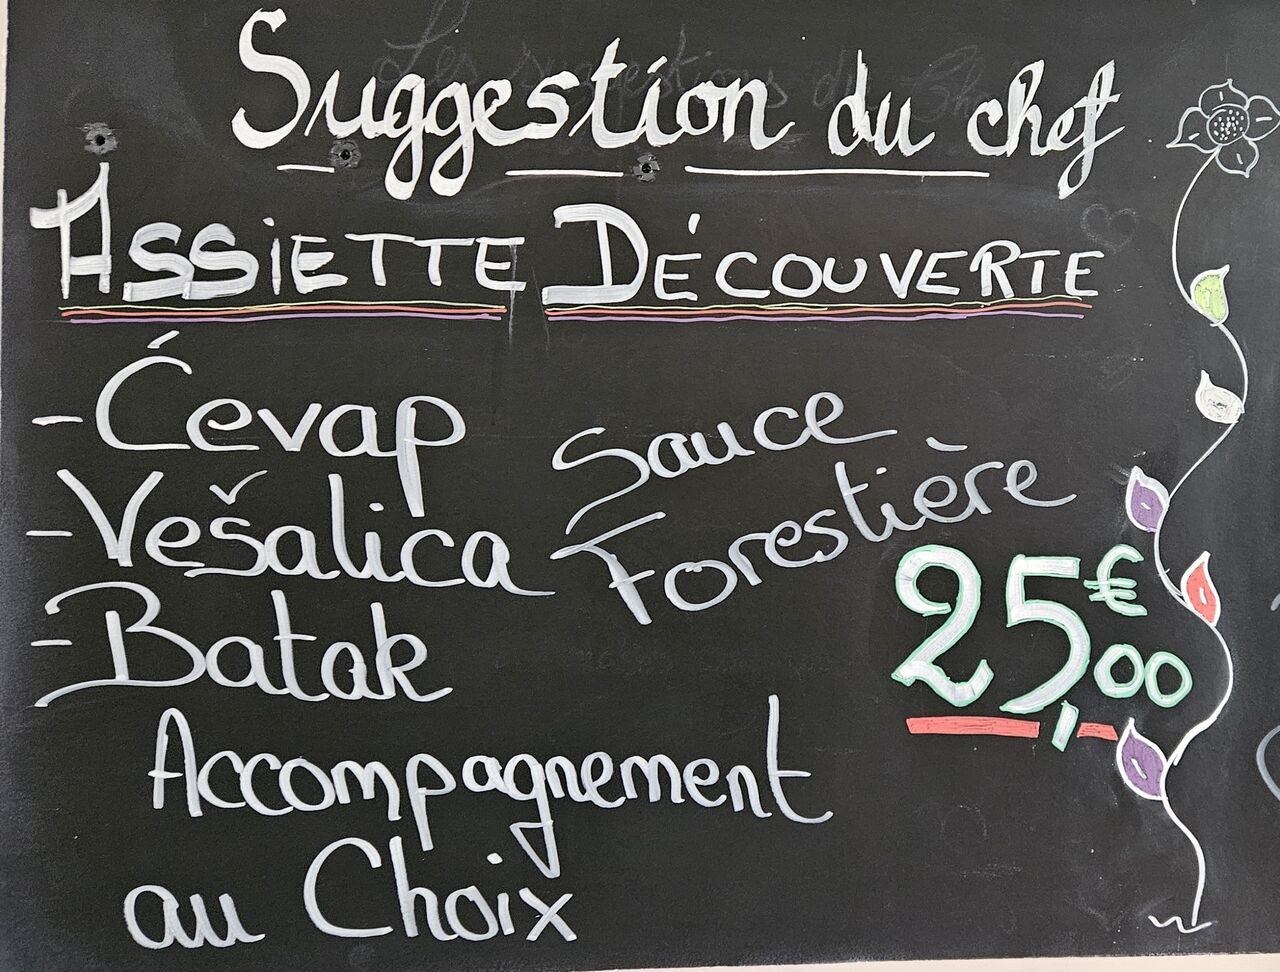 Suggestion du chef
Assiette Découverte
- Ćevap
- Vešalica
- Batak
Sauce
Forestière
25,00 €
Accompagnement
au Choix